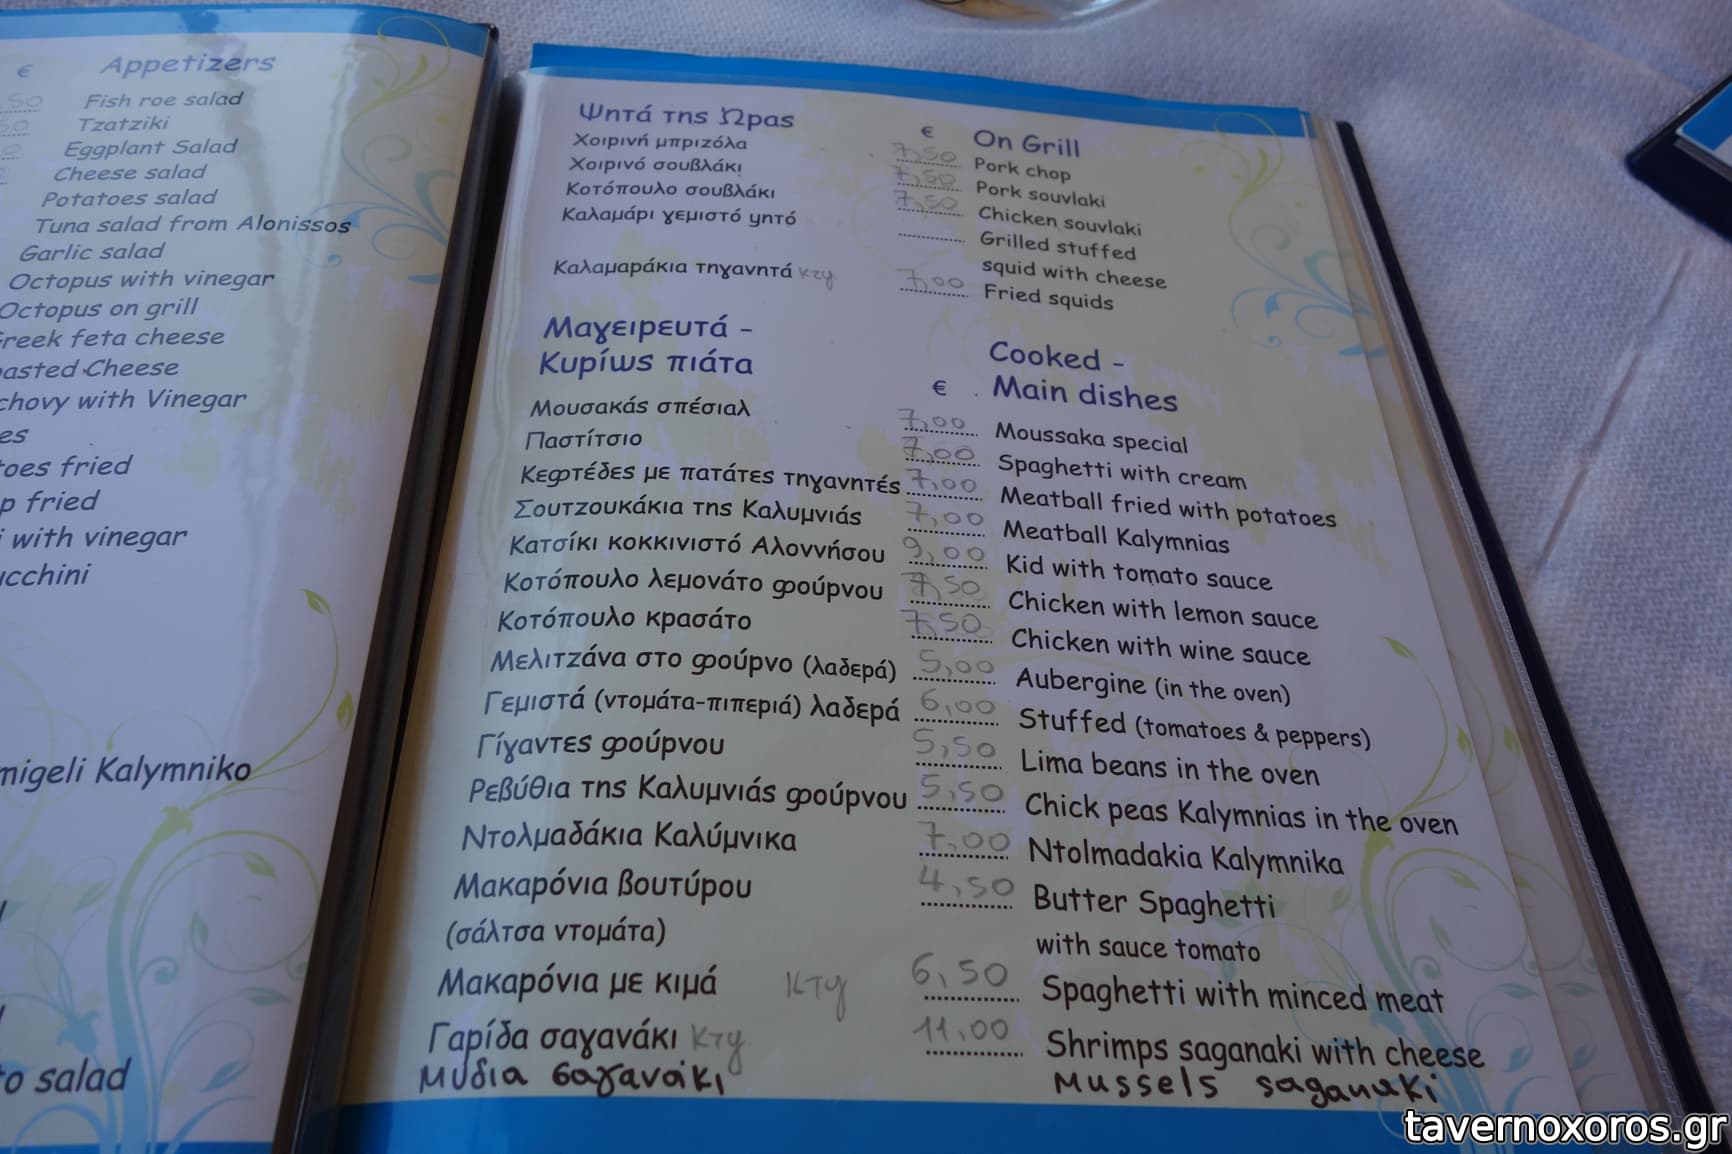 € Appetizers
Fish roe salad
Tzatziki
Eggplant Salad
Cheese salad
Potatoes salad
Tuna salad from Alonissos
Garlic salad
Octopus with vinegar
Octopus on grill
reek feta cheese
asted Cheese
chovy with Vinegar
es
toes fried
p fried
i with vinegar
ucchini
migeli Kalymniko
o salad
Ψητά της Ώρας € On Grill
Χοιρινή μπριζόλα 7,50 Pork chop
Χοιρινό σουβλάκι 7,50 Pork souvlaki
Κοτόπουλο σουβλάκι 7,50 Chicken souvlaki
Καλαμάρι γεμιστό ψητό Grilled stuffed
squid with cheese
Καλαμαράκια τηγανητά κτψ 7,00 Fried squids
Μαγειρευτά - Cooked -
Κυρίως πιάτα € Main dishes
Μουσακάς σπέσιαλ 7,00 Moussaka special
Παστίτσιο 7,00 Spaghetti with cream
Κεφτέδες με πατάτες τηγανητές 7,00 Meatball fried with potatoes
Σουτζουκάκια της Καλυμνιάς 7,00 Meatball Kalymnias
Κατσίκι κοκκινιστό Αλοννήσου 9,00 Kid with tomato sauce
Κοτόπουλο λεμονάτο φούρνου 7,50 Chicken with lemon sauce
Κοτόπουλο κρασάτο 7,50 Chicken with wine sauce
Μελιτζάνα στο φούρνο (λαδερά) 5,00 Aubergine (in the oven)
Γεμιστά (ντομάτα-πιπεριά) λαδερά 6,00 Stuffed (tomatoes & peppers)
Γίγαντες φούρνου 5,50 Lima beans in the oven
Ρεβύθια της Καλυμνιάς φούρνου 5,50 Chick peas Kalymnias in the oven
Ντολμαδάκια Καλύμνικα 7,00 Ntolmadakia Kalymnika
Μακαρόνια βουτύρου 4,50 Butter Spaghetti
(σάλτσα ντομάτα) with sauce tomato
Μακαρόνια με κιμά κτψ 6,50 Spaghetti with minced meat
Γαρίδα σαγανάκι κτψ 11,00 Shrimps saganaki with cheese
Μυδια σαγανάκι Mussels saganaki
tavernoxoros.gr